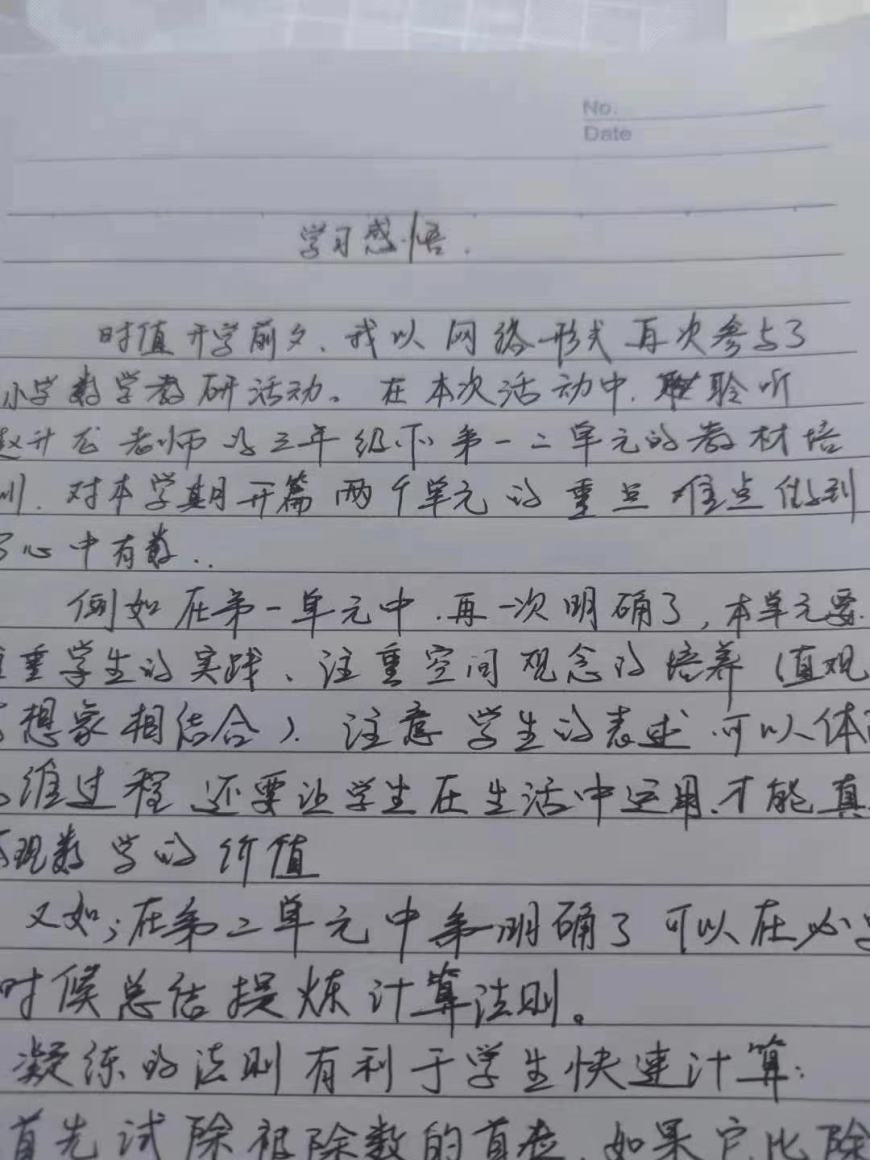 No.
Date
学习感悟.
时值开学前夕、我以网络形式再次参与了
小学数学教研活动。在本次活动中,聆听
赵升龙老师的三年级下第一二单元的教材培
训.对本学期开篇两个单元的重点难点做到
了心中有数..
例如在第一单元中.再一次明确了,本单元要
重学生的实践、注重空间观念的培养(直观
想象相结合).注意学生的表述.可以体
维过程还要让学生在生活中运用.才能真
现数学的价值
又如;在第二单元中明确了可以在必
时候总结提炼计算法则。
凝练的法则有利于学生快速计算:
首先试除被除数的首位.如果它比除